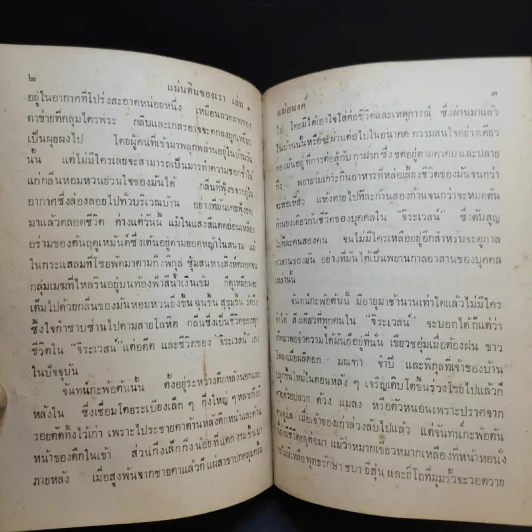 ๒ แผ่นดินของเรา เล่ม ๑
อยู่ในอากาศที่โปร่งสะอาดหน่อยหนึ่ง เหมือนลวดลายของ
ตาข่ายที่คลุมไตรพระ กลีบและเกสรอาจจะตกลงถูกเหยียบ
เป็นผุยผงไป โดยผู้คนที่เข้ามาพลุกพล่านอยู่ในบ้าน
นั้น แต่ไม่มีใครเลยจะสามารถเป็นมารทำความชอกช้ำให้
แก่กลิ่นหอมหวนยวนใจของมันได้ กลิ่นที่ฟุ้งขจรอยู่ใน
อากาศซึ่งล่องลอยไปทั่วบริเวณบ้าน อย่างที่มันเคยฟุ้งขจร
มาแล้วตลอดชีวิต ต่างแต่วันนี้ แม้ในแสงแดดอ่อนเหลือง
อร่ามของต้นฤดูเหมันต์ซึ่งเต้นอยู่ตามยอดหญ้าในสนาม
ในกระแสลมที่โชยพัดมาตามกิ่งพิกุล ซุ้มสนทางสิงห์ตลอดจน
กลุ่มเมฆที่ไหลวนอยู่บนท้องฟ้าสีน้ำเงินเข้ม ก็ดูเหมือนจะ
เต็มไปด้วยกลิ่นของมันหอมหวนยิ่งขึ้น ฉุนขึ้น สุขุมขึ้น
ซึ้งใจกำซาบซ่านไปตามสายโลหิต กลิ่นซึ่งเป็นชีวิตของทุก
ชีวิตใน “จิระเวสน์” แต่อดีต และชีวิตของ “จิระเวสน์” เอง
ในปัจจุบัน
จันทน์กะพ้อต้นนั้น ตั้งอยู่ระหว่างตึกหลังนอกและ
หลังใน ซึ่งเชื่อมโดยระเบียงเล็ก ๆ
รอยคตกิ้งไว้เก่า เพราะไปประชายคาด้านหลังตึกหน้าและด้าน
หน้าของตึกในเข้า ส่วนกิ่งเล็กกิ่งน้อยที่แตกงามขึ้นมา
ภายหลัง เมื่อสูงพ้นจากชายคาแล้วก็แผ่สาขาปกคลุม
แม่อนงค์ ๓
ไป โดยมิได้เอาใจใส่กับชีวิตและเหตุการณ์ ซึ่งผ่านมาแล้ว
ในบ้านนั้นหรือจะผ่านต่อไปในอนาคต ความสนใจอย่างเดียว
ของมันอยู่ที่การต่อสู้กับกาฝาก ซึ่งขดอยู่ตามคาคบและปลาย
กิ่ง พยายามเกาะกินอาหารที่หล่อเลี้ยงชีวิตของมันจนกว่า
จะห่อเหี่ยว แห้งตายไปทีละก้านสองก้านจนกว่าจะหมดต้น
ทำนองเดียวกับชีวิตของบุคคลใน “จิระเวสน์” ซึ่งดับสูญ
ไปทีละคนสองคน จนไม่มีใครเหลืออยู่อีกสำหรับจะดูกาล
อวสานของมัน อย่างที่มันได้เป็นพยานกาลอวสานของบุคคล
เหล่านั้น
จันทน์กะพ้อต้นนี้ มีอายุมาช้านานเท่าใดแล้วไม่มีใคร
จำได้ สิ่งเดียวที่ทุกคนใน “จิระเวสน์” จะบอกได้ก็แต่ว่า
ความได้มันก็อยู่ที่นั่น เขียวชอุ่มเมื่อต้องฝน ขาว
โพลงเมื่อผลิดอก มณฑา จำปี และพิกุลที่เจ้าของบ้าน
ปลูกขึ้นใหม่ในตอนหลัง ๆ เจริญเติบโตขึ้นร่วงโรยไปแล้วก็
ตายลงด้วย ด้วง แมลง หรือตัวหนอนเพราะปราศจาก
คนดูแล เมื่อเจ้าของเก่าล่วงลับไปแล้ว แต่จันทน์กะพ้อต้น
แม้ว่าหมากเขียวหมากเหลืองที่หน้าหอนั่ง
พุทธรักษา ชบา ยี่สุ่น และยี่โถที่มุมรั้วจะวอดวาย